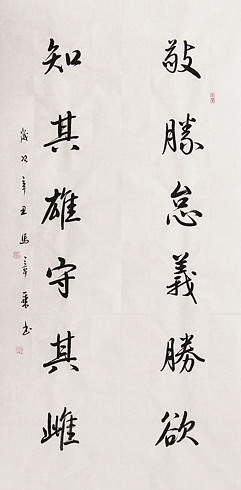 敬勝怠義勝欲
知其雄守其雌
歲次辛丑馬彦乘书